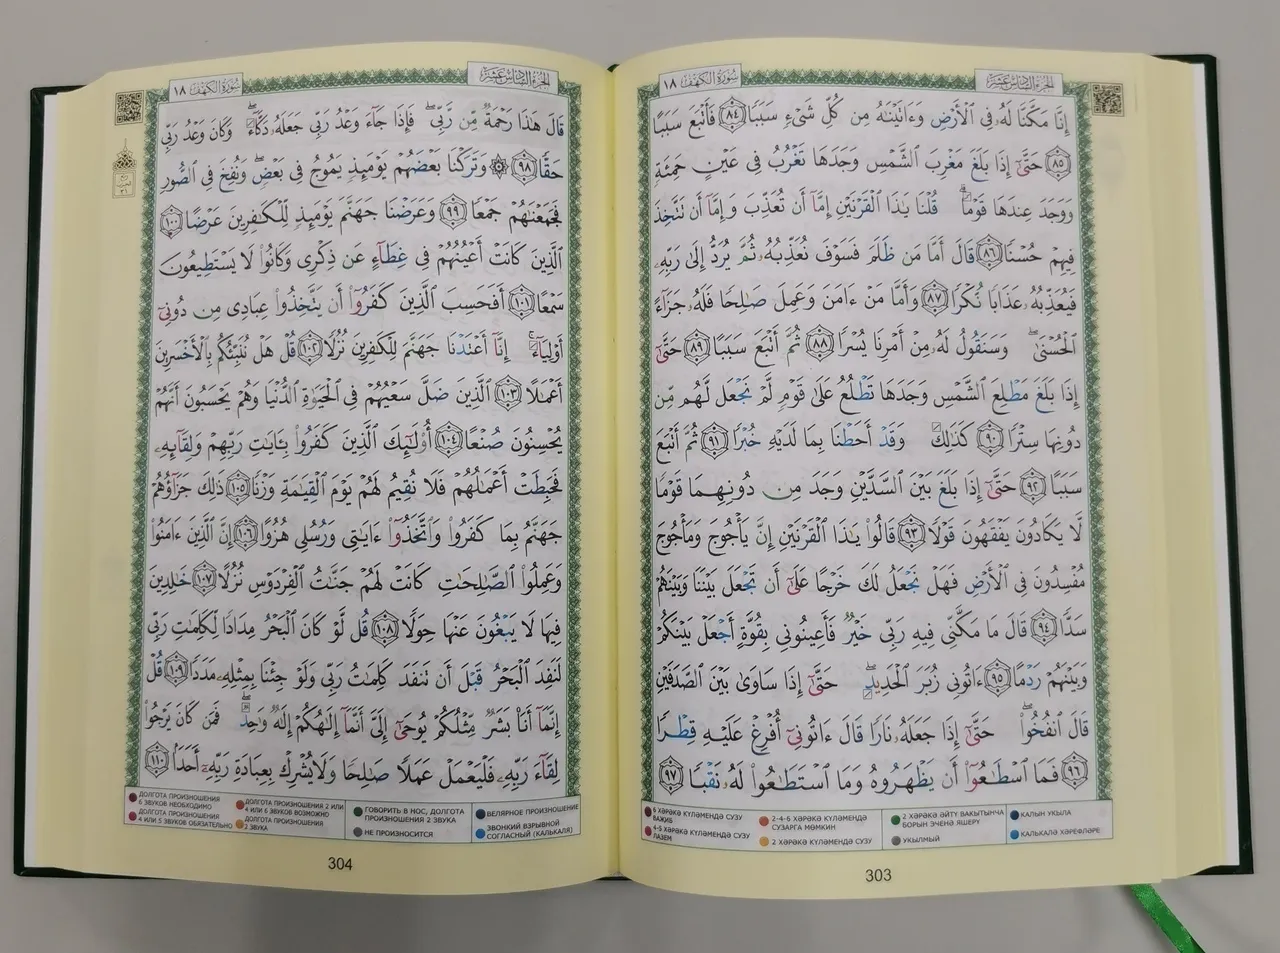 الجزء السادس عشر
سورة الكهف ١٨
إِنَّا مَكَّنَّا لَهُۥ فِى ٱلْأَرْضِ وَءَاتَيْنَٰهُ مِن كُلِّ شَىْءٍ سَبَبًا ٨٤ فَأَتْبَعَ سَبَبًا
٨٥ حَتَّىٰٓ إِذَا بَلَغَ مَغْرِبَ ٱلشَّمْسِ وَجَدَهَا تَغْرُبُ فِى عَيْنٍ حَمِئَةٍ
وَوَجَدَ عِندَهَا قَوْمًاۗ قُلْنَا يَٰذَا ٱلْقَرْنَيْنِ إِمَّآ أَن تُعَذِّبَ وَإِمَّآ أَن تَتَّخِذَ
فِيهِمْ حُسْنًا ٨٦ قَالَ أَمَّا مَن ظَلَمَ فَسَوْفَ نُعَذِّبُهُۥ ثُمَّ يُرَدُّ إِلَىٰ رَبِّهِۦ
فَيُعَذِّبُهُۥ عَذَابًا نُّكْرًا ٨٧ وَأَمَّا مَنْ ءَامَنَ وَعَمِلَ صَٰلِحًا فَلَهُۥ جَزَآءً
ٱلْحُسْنَىٰۖ وَسَنَقُولُ لَهُۥ مِنْ أَمْرِنَا يُسْرًا ٨٨ ثُمَّ أَتْبَعَ سَبَبًا ٨٩ حَتَّىٰٓ
إِذَا بَلَغَ مَطْلِعَ ٱلشَّمْسِ وَجَدَهَا تَطْلُعُ عَلَىٰ قَوْمٍ لَّمْ نَجْعَل لَّهُم مِّن
دُونِهَا سِتْرًا ٩٠ كَذَٰلِكَۖ وَقَدْ أَحَطْنَا بِمَا لَدَيْهِ خُبْرًا ٩١ ثُمَّ أَتْبَعَ
سَبَبًا ٩٢ حَتَّىٰٓ إِذَا بَلَغَ بَيْنَ ٱلسَّدَّيْنِ وَجَدَ مِن دُونِهِمَا قَوْمًا
لَّا يَكَادُونَ يَفْقَهُونَ قَوْلًا ٩٣ قَالُوا۟ يَٰذَا ٱلْقَرْنَيْنِ إِنَّ يَأْجُوجَ وَمَأْجُوجَ
مُفْسِدُونَ فِى ٱلْأَرْضِ فَهَلْ نَجْعَلُ لَكَ خَرْجًا عَلَىٰٓ أَن تَجْعَلَ بَيْنَنَا وَبَيْنَهُمْ
سَدًّا ٩٤ قَالَ مَا مَكَّنِّى فِيهِ رَبِّى خَيْرٌ فَأَعِينُونِى بِقُوَّةٍ أَجْعَلْ بَيْنَكُمْ
وَبَيْنَهُمْ رَدْمًا ٩٥ ءَاتُونِى زُبَرَ ٱلْحَدِيدِۖ حَتَّىٰٓ إِذَا سَاوَىٰ بَيْنَ ٱلصَّدَفَيْنِ
قَالَ ٱنفُخُوا۟ۖ حَتَّىٰٓ إِذَا جَعَلَهُۥ نَارًا قَالَ ءَاتُونِىٓ أُفْرِغْ عَلَيْهِ قِطْرًا
٩٦ فَمَا ٱسْطَٰعُوٓا۟ أَن يَظْهَرُوهُ وَمَا ٱسْتَطَٰعُوا۟ لَهُۥ نَقْبًا ٩٧
6 ХӘРӘКӘ КҮЛӘМЕНДӘ СУЗУ ВАҖИБ
4-6 ХӘРӘКӘ КҮЛӘМЕНДӘ СУЗУ ЛАЗЕМ
2-4-6 ХӘРӘКӘ КҮЛӘМЕНДӘ СУЗАРГА МӨМКИН
2 ХӘРӘКӘ КҮЛӘМЕНДӘ СУЗУ
2 ХӘРӘКӘ ӘЙТҮ ВАКЫТЫНЧА БОРЫН ЭЧЕНӘ ЯШЕРҮ
УКЫЛМЫЙ
КАЛЫН УКЫЛА
КАЛЬКАЛӘ ХӘРЕФЛӘРЕ
303
الجزء السادس عشر
سورة الكهف ١٨
قَالَ هَٰذَا رَحْمَةٌ مِّن رَّبِّىۖ فَإِذَا جَآءَ وَعْدُ رَبِّى جَعَلَهُۥ دَكَّآءَۖ وَكَانَ وَعْدُ رَبِّى
حَقًّا ٩٨ ۞ وَتَرَكْنَا بَعْضَهُمْ يَوْمَئِذٍ يَمُوجُ فِى بَعْضٍۖ وَنُفِخَ فِى ٱلصُّورِ
فَجَمَعْنَٰهُمْ جَمْعًا ٩٩ وَعَرَضْنَا جَهَنَّمَ يَوْمَئِذٍ لِّلْكَٰفِرِينَ عَرْضًا ١٠٠
ٱلَّذِينَ كَانَتْ أَعْيُنُهُمْ فِى غِطَآءٍ عَن ذِكْرِى وَكَانُوا۟ لَا يَسْتَطِيعُونَ
سَمْعًا ١٠١ أَفَحَسِبَ ٱلَّذِينَ كَفَرُوٓا۟ أَن يَتَّخِذُوا۟ عِبَادِى مِن دُونِىٓ
أَوْلِيَآءَۚ إِنَّآ أَعْتَدْنَا جَهَنَّمَ لِلْكَٰفِرِينَ نُزُلًا ١٠٢ قُلْ هَلْ نُنَبِّئُكُم بِٱلْأَخْسَرِينَ
أَعْمَٰلًا ١٠٣ ٱلَّذِينَ ضَلَّ سَعْيُهُمْ فِى ٱلْحَيَوٰةِ ٱلدُّنْيَا وَهُمْ يَحْسَبُونَ أَنَّهُمْ
يُحْسِنُونَ صُنْعًا ١٠٤ أُو۟لَٰٓئِكَ ٱلَّذِينَ كَفَرُوا۟ بِـَٔايَٰتِ رَبِّهِمْ وَلِقَآئِهِۦ
فَحَبِطَتْ أَعْمَٰلُهُمْ فَلَا نُقِيمُ لَهُمْ يَوْمَ ٱلْقِيَٰمَةِ وَزْنًا ١٠٥ ذَٰلِكَ جَزَآؤُهُمْ
جَهَنَّمُ بِمَا كَفَرُوا۟ وَٱتَّخَذُوٓا۟ ءَايَٰتِى وَرُسُلِى هُزُوًا ١٠٦ إِنَّ ٱلَّذِينَ ءَامَنُوا۟
وَعَمِلُوا۟ ٱلصَّٰلِحَٰتِ كَانَتْ لَهُمْ جَنَّٰتُ ٱلْفِرْدَوْسِ نُزُلًا ١٠٧ خَٰلِدِينَ
فِيهَا لَا يَبْغُونَ عَنْهَا حِوَلًا ١٠٨ قُل لَّوْ كَانَ ٱلْبَحْرُ مِدَادًا لِّكَلِمَٰتِ رَبِّى
لَنَفِدَ ٱلْبَحْرُ قَبْلَ أَن تَنفَدَ كَلِمَٰتُ رَبِّى وَلَوْ جِئْنَا بِمِثْلِهِۦ مَدَدًا ١٠٩ قُلْ
إِنَّمَآ أَنَا۠ بَشَرٌ مِّثْلُكُمْ يُوحَىٰٓ إِلَىَّ أَنَّمَآ إِلَٰهُكُمْ إِلَٰهٌ وَٰحِدٌۖ فَمَن كَانَ يَرْجُوا۟
لِقَآءَ رَبِّهِۦ فَلْيَعْمَلْ عَمَلًا صَٰلِحًا وَلَا يُشْرِكْ بِعِبَادَةِ رَبِّهِۦٓ أَحَدًۢا ١١٠
ДОЛГОТА ПРОИЗНОШЕНИЯ 6 ЗВУКОВ НЕОБХОДИМО
ДОЛГОТА ПРОИЗНОШЕНИЯ 4 ИЛИ 5 ЗВУКОВ ОБЯЗАТЕЛЬНО
ДОЛГОТА ПРОИЗНОШЕНИЯ 2 ИЛИ 4 ИЛИ 6 ЗВУКОВ ВОЗМОЖНО
ДОЛГОТА ПРОИЗНОШЕНИЯ 2 ЗВУКА
ГОВОРИТЬ В НОС, ДОЛГОТА ПРОИЗНОШЕНИЯ 2 ЗВУКА
НЕ ПРОИЗНОСИТСЯ
ВЕЛЯРНОЕ ПРОИЗНОШЕНИЕ
ЗВОНКИЙ ВЗРЫВНОЙ СОГЛАСНЫЙ (КАЛЬКАЛЯ)
304